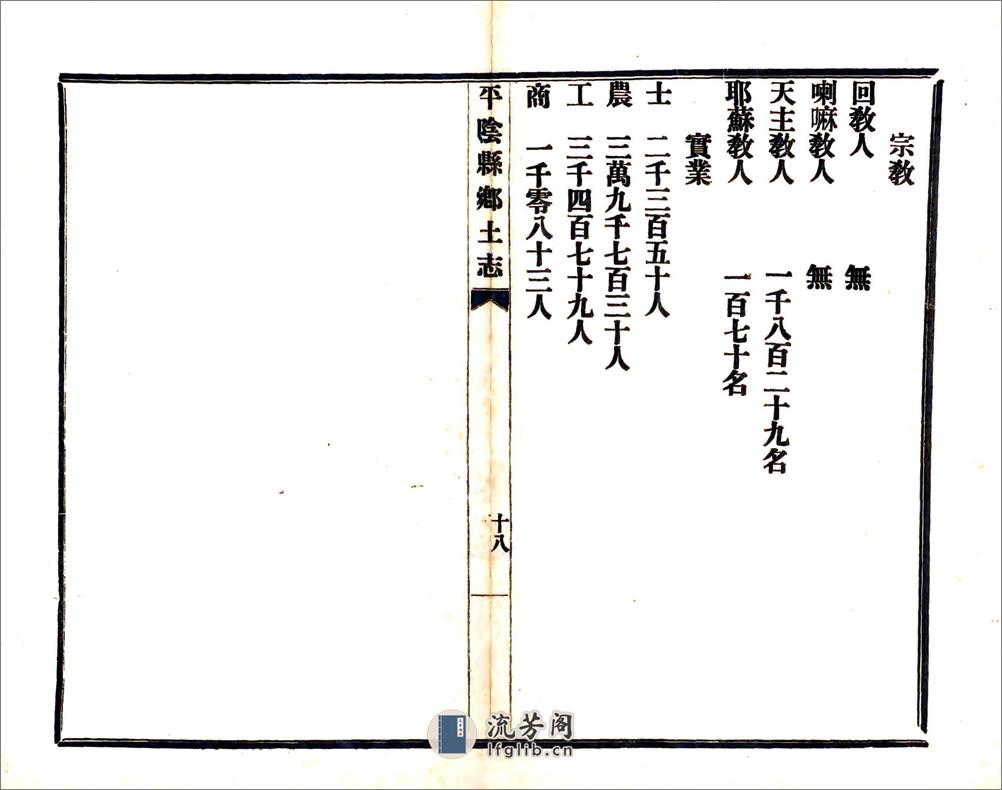 宗教
回教人 無
喇嘛教人 無
天主教人 一千八百二十九名
耶蘇教人 一百七十名
實業
士 二千三百五十人
農 三萬九千七百三十人
工 三千四百七十九人
商 一千零八十三人
平陰縣鄉土志
十八
流芳阁
lfglib.cn